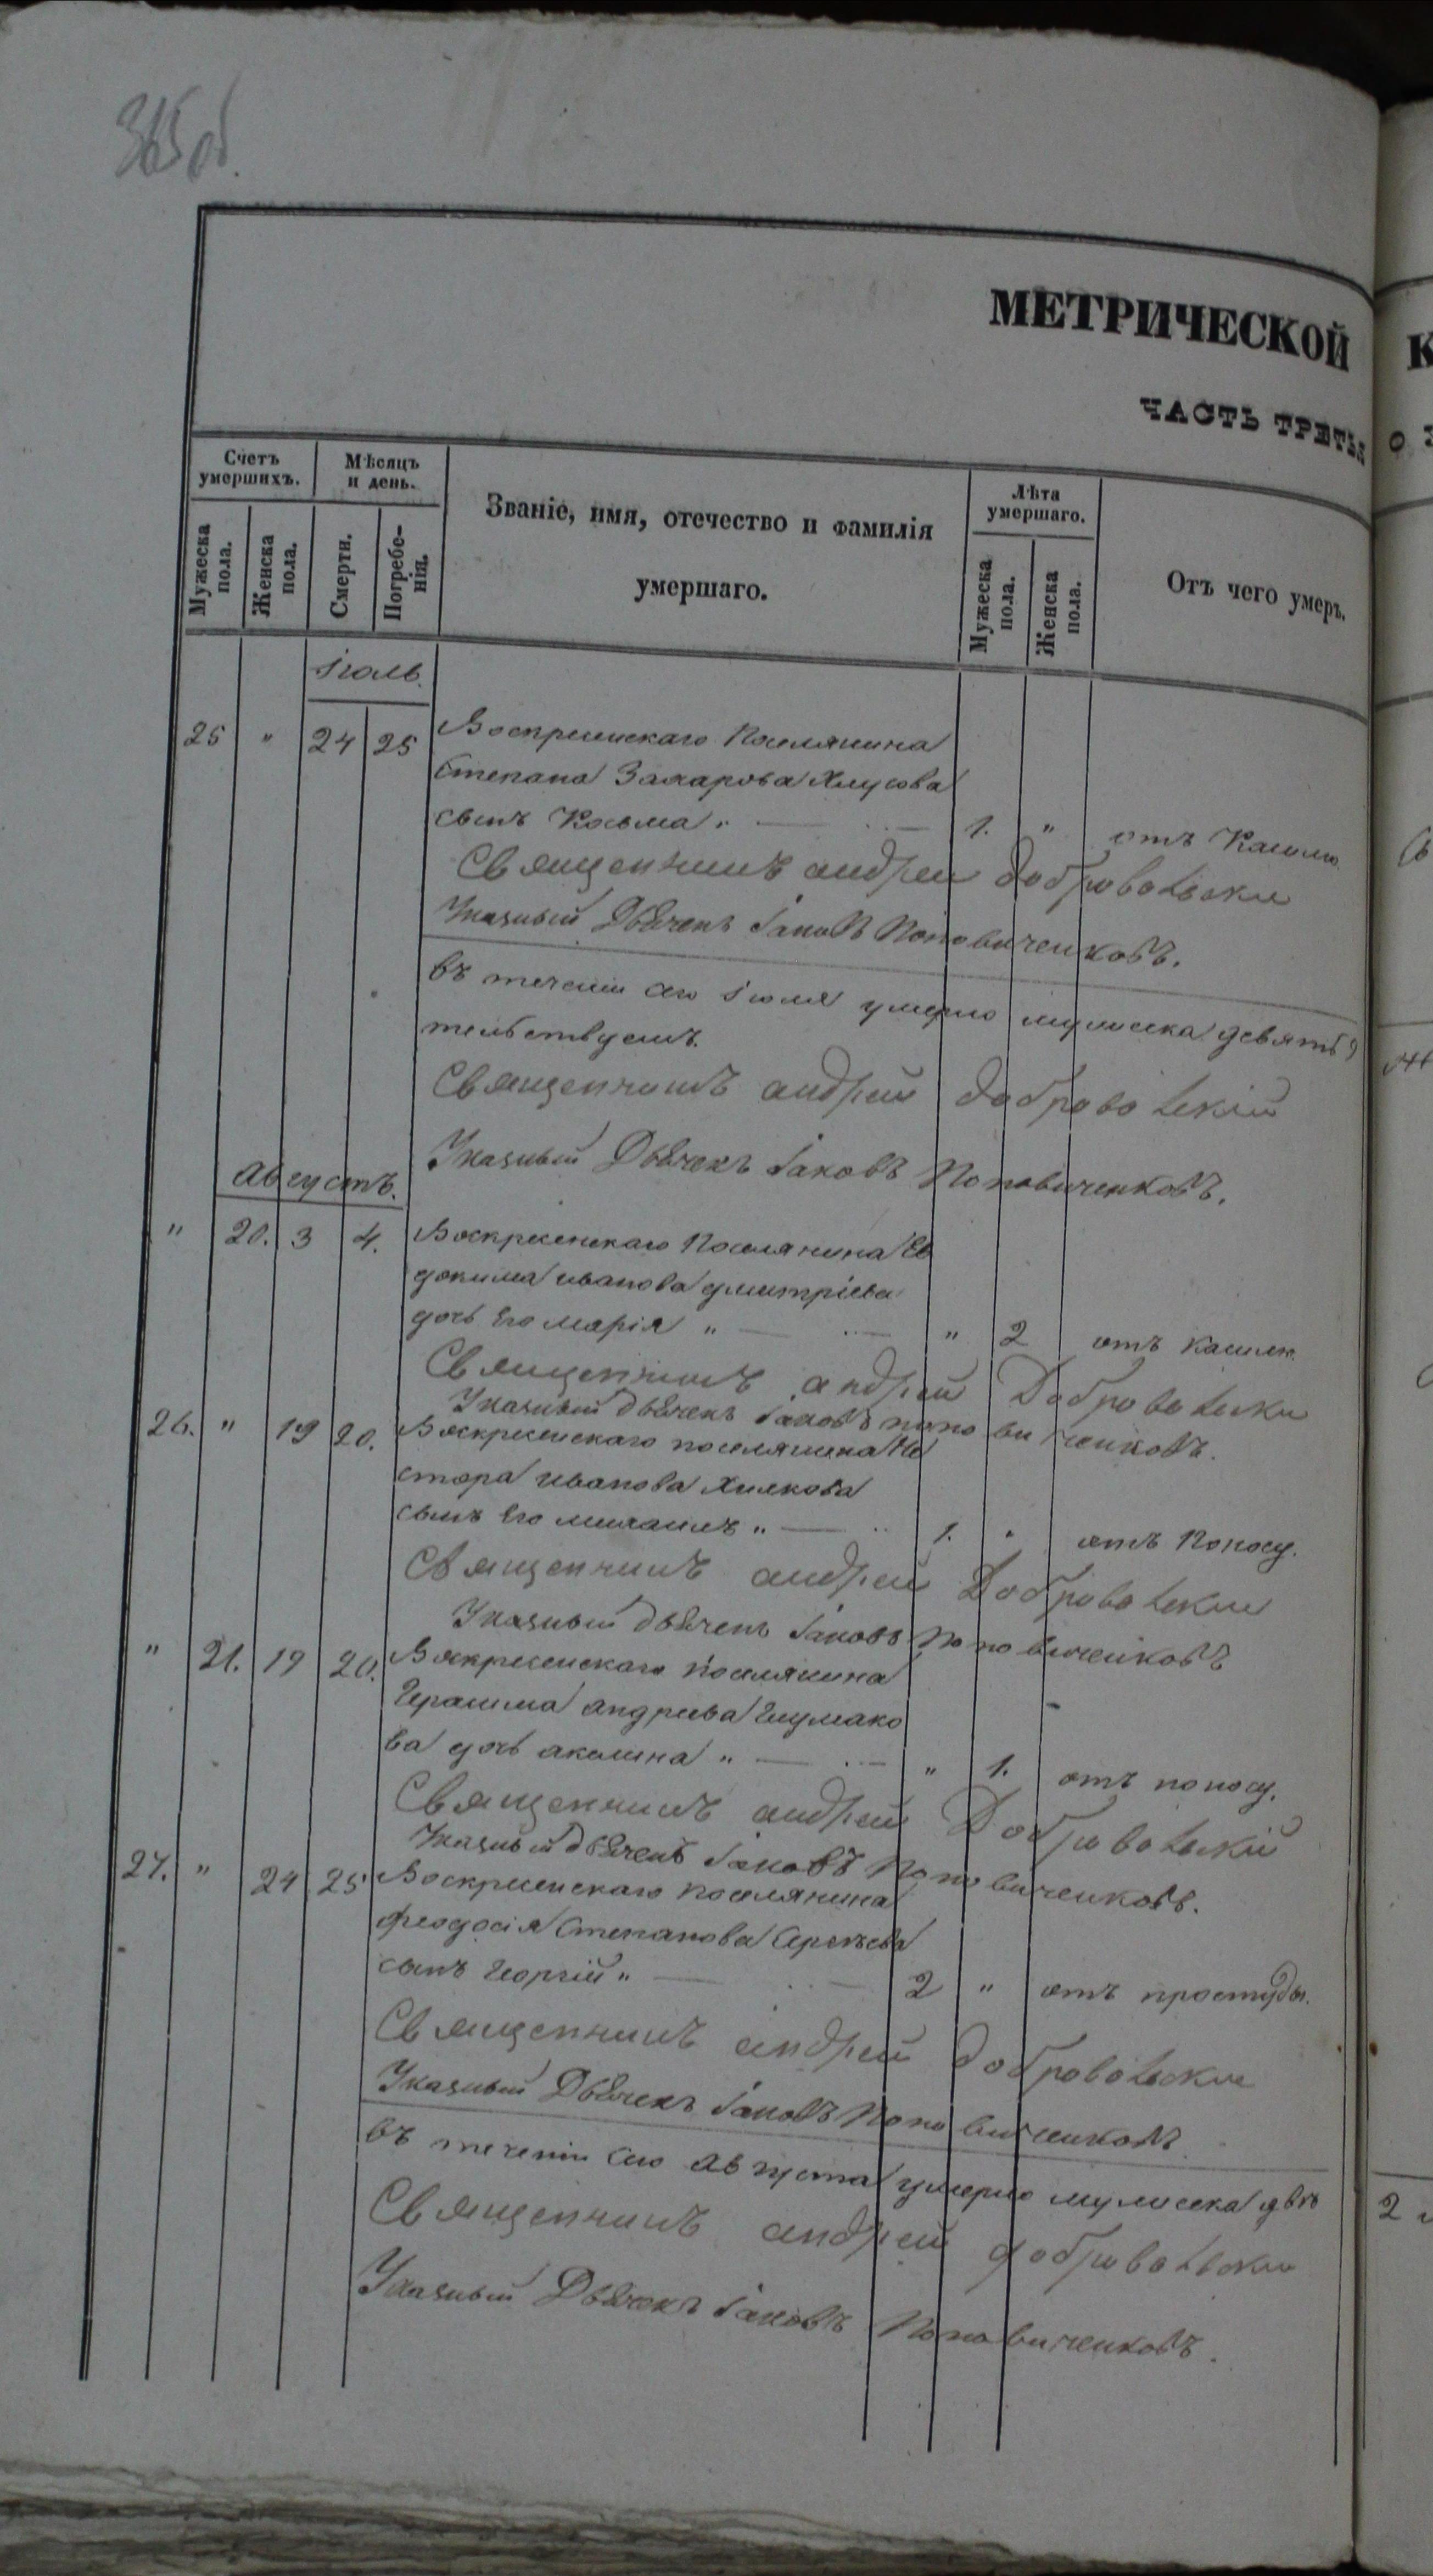 365 об.
МЕТРИЧЕСКОЙ
ЧАСТЬ ТРЕТЬЯ
Счетъ умершихъ.
Мужеска пола.
Женска пола.
Мѣсяцъ и день.
Смерти.
Погребенія.
Званіе, имя, отечество и фамилія
умершаго.
Лѣта умершаго.
Мужеска пола.
Женска пола.
Отъ чего умеръ.
іюль.
25 " 24 25 Воскресенскаго Поселянина
Степана Захарова
сынъ Косма " 1. " отъ Кашлю
Священникъ андрей добровольски
Указный Дьячекъ Іаковъ Поповиченковъ.
въ теченіи сего іюля умерло мужеска девять
тельствуемъ.
Священникъ андрей добровольскій
Указный Дьячекъ Іаковъ Поповиченковъ.
Августъ.
" 20. 3 4. Воскресенскаго Поселянина Ев
докима иванова дмитріева
дочь Его марія " " 2 отъ кашлю.
Священникъ андрей Добровольски
Указный дьячекъ Іаковъ поповиченковъ.
26. " 19 20. Воскресенскаго поселянина Не
стора иванова Хилкова
сынъ Его михаилъ " 1. " отъ Поносу.
Священникъ андрей Добровольски
Указный дьячекъ Іаковъ Поповиченковъ
" 21. 19 20. Воскресенскаго поселянина
Герасима андреева Шумако
ва дочь акилина " " 1. отъ поносу.
Священникъ андрей Добровольскій
Указный дьячекъ Іаковъ Поповиченковъ.
27. " 24 25 Воскресенскаго поселянина
феодосія Степанова
сынъ Георгій " 2 " отъ простуды.
Священникъ андрей добровольски
Указный Дьячекъ Іаковъ Поповиченковъ
въ теченіи сего августа умерло мужеска двѣ
Священникъ андрей добровольски
Указный Дьячекъ Іаковъ Поповиченковъ.